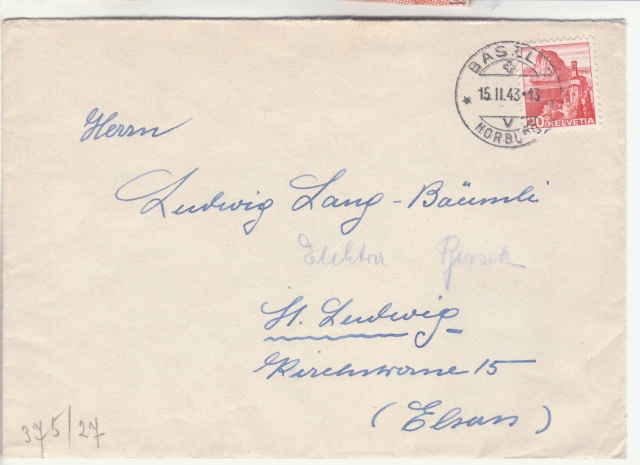 BASEL
15.II.43-13
V
HORBURG
20 HELVETIA
Herrn
Ludwig Lang-Bäumli
Elektra
St. Ludwig
15
(Elsass)
375/27